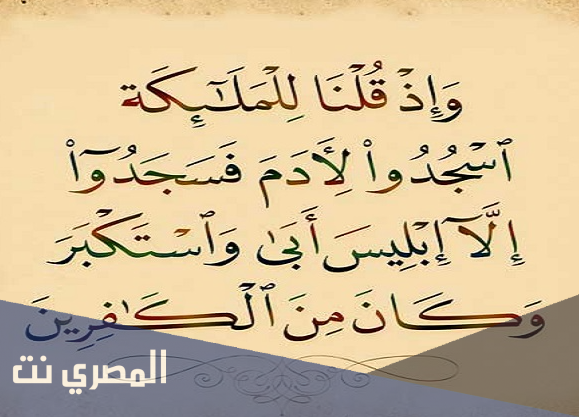 وَإِذْ قُلْنَا لِلْمَلَٰٓئِكَةِ
ٱسْجُدُوا۟ لِأَدَمَ فَسَجَدُوٓا۟
إِلَّآ إِبْلِيسَ أَبَىٰ وَٱسْتَكْبَرَ
وَكَانَ مِنَ ٱلْكَٰفِرِينَ
المصري نت